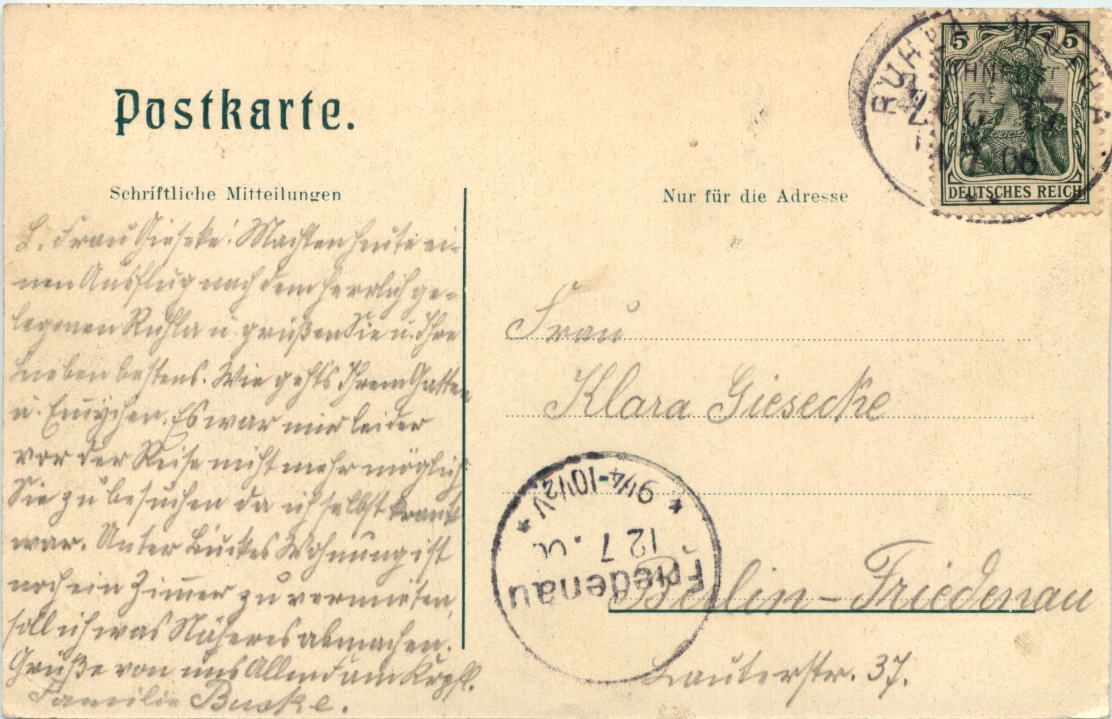 Postkarte.
Schriftliche Mitteilungen
Nur für die Adresse
5 5
DEUTSCHES REICH
RUHLA-WUTHA
BAHNPOST
ZUG 17
7 06
L. Frau Gieseke! Machten heute ei-
nen Ausflug nach dem herrlich ge-
legenen Ruhla u. grüßen Sie u. Ihre
Lieben bestens. Wie geht's Ihrem Gatten
u. Es war mir leider
vor der Reise nicht mehr möglich
Sie zu besuchen da ich selbst krank
war. Unter Wohnung ist
noch ein Zimmer zu vermieten,
soll ich was Näheres abmachen.
Grüße von uns Allen
Familie Buske.
Frau
Klara Giesecke
Berlin-Friedenau
Lauterstr. 37.
Friedenau
12 7
* 9¼-10½V *